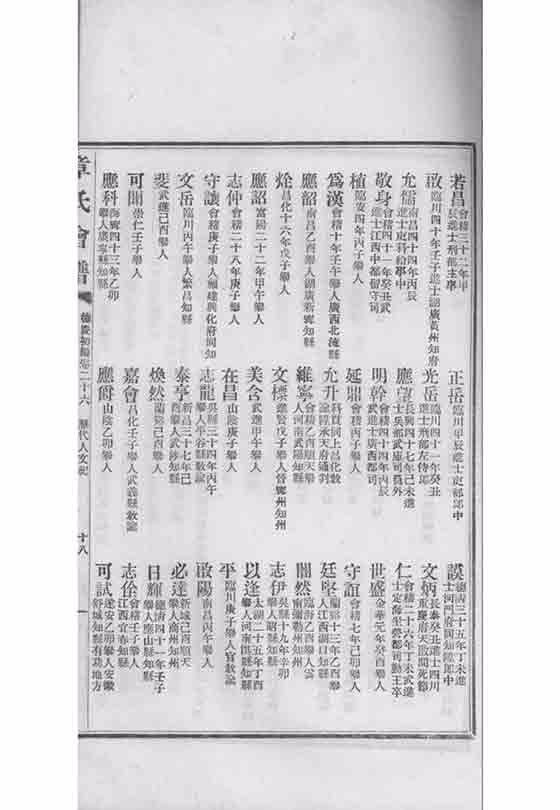 若昌 會稽三十二年甲辰進士刑部主事
啟 臨川四十年壬子進士湖廣黃州知府
允儒 南昌四十四年丙辰進士吏科給事中
敬身 會稽四十一年癸丑武進士江西中都留守司
植 臨安四年丙子舉人
為漢 會稽十年壬午舉人廣西北流縣
應韶 南昌乙酉舉人湖廣新鄉知縣
烇 昌化十六年戊子舉人
應詔 富陽二十二年甲午舉人
志仲 會稽二十八年庚子舉人
守讓 會稽庚子舉人福建興化府同知
文岳 臨川丙午舉人繁昌知縣
斐 武進己酉舉人
可聞 崇仁壬子舉人
應科 海鄉四十三年乙卯舉人廣寧縣知縣
正岳 臨川甲辰進士吏部郎中
光岳 臨川四十一年癸丑進士刑部左侍郎
應望 長興四十七年己未進士兵部武庫司員外
明幹 會稽四十四年丙辰武進士廣西都司
延鼎 會稽丙子舉人
允升 諭陞承天府通判
維寧 會稽乙酉順天舉人河南武陽知縣
文標 進賢戊子舉人晉鄉州知州
美含 武進甲午舉人
在昌 山陰庚子舉人
志龍 吳縣三十四年丙午舉人平谷縣教諭
泰亨 新昌三十七年己酉舉人武涉知縣
煥然 蘭谿己酉舉人
嘉會 昌化壬子舉人武義縣教諭
應爵 山陰乙卯舉人
謨 德清三十五年丁未進士
文炳 長泰癸丑進士四川重慶府
仁 會稽二十六年丁未武進士定海
世盛 金華元年癸酉舉人
守誼 會稽七年己卯舉人
廷堅 蘭谿十三年乙酉舉人江西湖口知縣
闇然 臨海乙酉舉人雲南彌勒州知州
志伊 吳縣十九年辛卯舉人昭縣知縣
以逢 太湖二十五年丁酉舉人河南淇縣知縣
平 臨川庚子舉人官教諭
啟陽 南昌丙午舉人
必達 新城己酉順天舉人商州知州
日輝 德清四十一年壬子舉人應山縣知縣
志佺 會稽壬子舉人江西宜春知縣
可試 遂安乙卯舉人安徽舒城知縣有功地方
章氏會譜
德慶初編卷二十六
歷代人文紀
十八